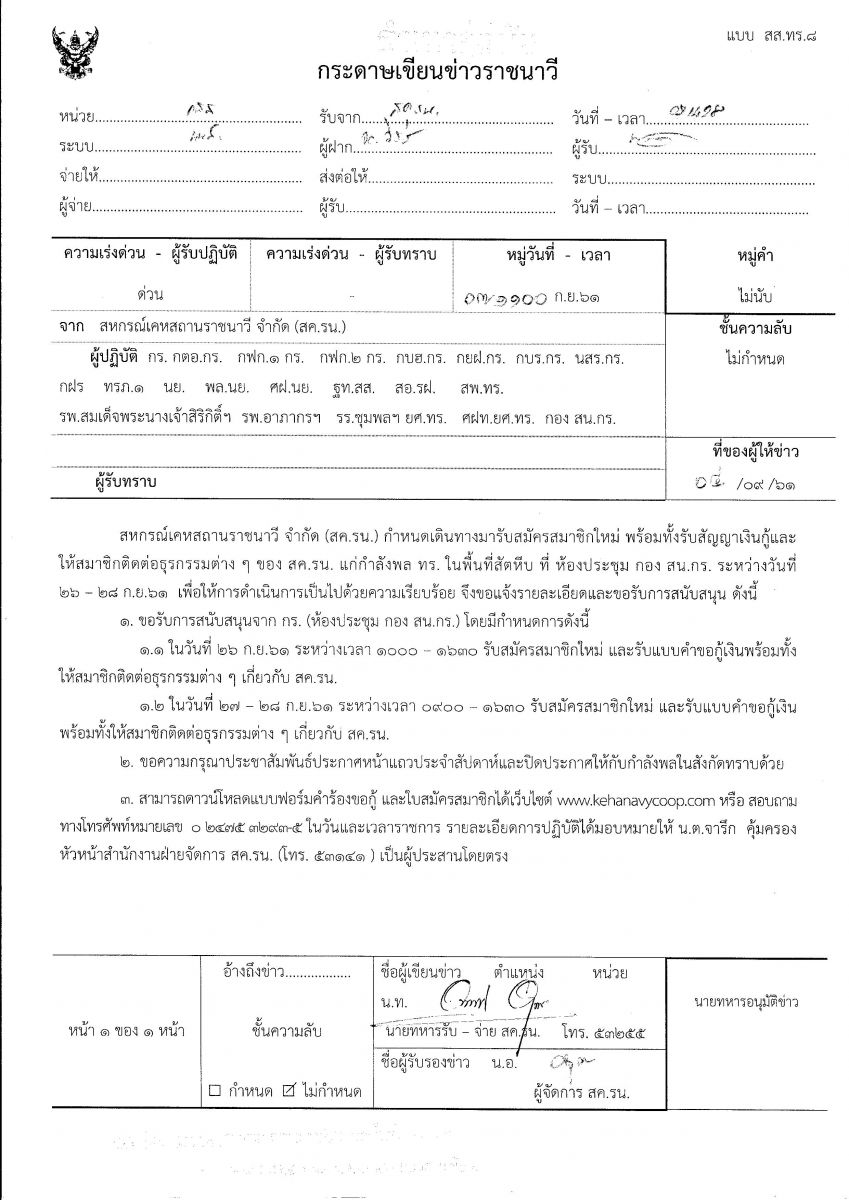 แบบ สส.ทร.๘
กระดาษเขียนข่าวราชนาวี
หน่วย.................... รับจาก.................... วันที่ – เวลา....................
ระบบ.................... ผู้ฝาก.................... ผู้รับ....................
จ่ายให้.................... ส่งต่อให้.................... ระบบ....................
ผู้จ่าย.................... ผู้รับ.................... วันที่ – เวลา....................
ความเร่งด่วน - ผู้รับปฏิบัติ ความเร่งด่วน - ผู้รับทราบ หมู่วันที่ - เวลา หมู่คำ
ด่วน - ๑๑๐๐ ก.ย.๖๑ ไม่นับ
จาก สหกรณ์เคหสถานราชนาวี จำกัด (สค.รน.) ชั้นความลับ
ผู้ปฏิบัติ กร. กตอ.กร. กฟก.๑ กร. กฟก.๒ กร. กบฮ.กร. กยฝ.กร. กบร.กร. นสร.กร. ไม่กำหนด
กฝร ทรภ.๑ นย. พล.นย. ศฝ.นย. ฐท.สส. สอ.รฝ. สพ.ทร.
รพ.สมเด็จพระนางเจ้าสิริกิติ์ฯ รพ.อาภากรฯ รร.ชุมพลฯ ยศ.ทร. ศฝท.ยศ.ทร. กอง สน.กร.
ที่ของผู้ให้ข่าว
ผู้รับทราบ /๐๙ /๖๑
สหกรณ์เคหสถานราชนาวี จำกัด (สค.รน.) กำหนดเดินทางมารับสมัครสมาชิกใหม่ พร้อมทั้งรับสัญญาเงินกู้และ
ให้สมาชิกติดต่อธุรกรรมต่าง ๆ ของ สค.รน. แก่กำลังพล ทร. ในพื้นที่สัตหีบ ที่ ห้องประชุม กอง สน.กร. ระหว่างวันที่
๒๖ – ๒๘ ก.ย.๖๑ เพื่อให้การดำเนินการเป็นไปด้วยความเรียบร้อย จึงขอแจ้งรายละเอียดและขอรับการสนับสนุน ดังนี้
๑. ขอรับการสนับสนุนจาก กร. (ห้องประชุม กอง สน.กร.) โดยมีกำหนดการดังนี้
๑.๑ ในวันที่ ๒๖ ก.ย.๖๑ ระหว่างเวลา ๑๐๐๐ – ๑๖๓๐ รับสมัครสมาชิกใหม่ และรับแบบคำขอกู้เงินพร้อมทั้ง
ให้สมาชิกติดต่อธุรกรรมต่าง ๆ เกี่ยวกับ สค.รน.
๑.๒ ในวันที่ ๒๗ – ๒๘ ก.ย.๖๑ ระหว่างเวลา ๐๙๐๐ – ๑๖๓๐ รับสมัครสมาชิกใหม่ และรับแบบคำขอกู้เงิน
พร้อมทั้งให้สมาชิกติดต่อธุรกรรมต่าง ๆ เกี่ยวกับ สค.รน.
๒. ขอความกรุณาประชาสัมพันธ์ประกาศหน้าแถวประจำสัปดาห์และปิดประกาศให้กับกำลังพลในสังกัดทราบด้วย
๓. สามารถดาวน์โหลดแบบฟอร์มคำร้องขอกู้ และใบสมัครสมาชิกได้เว็บไซต์ www.kehanavycoop.com หรือ สอบถาม
ทางโทรศัพท์หมายเลข ๐ ๒๔๗๕ ๓๒๙๓-๕ ในวันและเวลาราชการ รายละเอียดการปฏิบัติได้มอบหมายให้ น.ต.จารึก คุ้มครอง
หัวหน้าสำนักงานฝ่ายจัดการ สค.รน. (โทร. ๕๓๑๔๑ ) เป็นผู้ประสานโดยตรง
อ้างถึงข่าว.................. ชื่อผู้เขียนข่าว ตำแหน่ง หน่วย
น.ท. นายทหารอนุมัติข่าว
หน้า ๑ ของ ๑ หน้า ชั้นความลับ นายทหารรับ – จ่าย สค.รน. โทร. ๕๓๒๕๕
ชื่อผู้รับรองข่าว น.อ.
☐ กำหนด ☑ ไม่กำหนด ผู้จัดการ สค.รน.